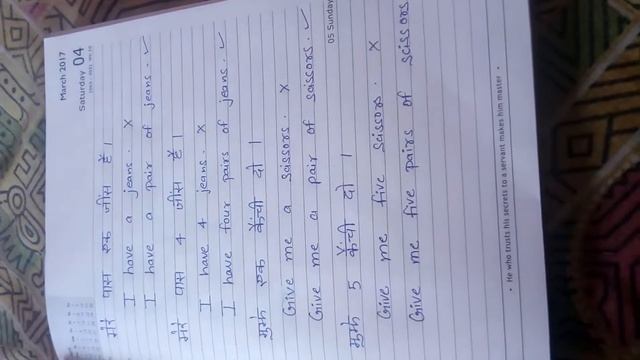 March 2017
Saturday 04
मेरे पास एक जींस है।
I have a jeans. ×
I have a pair of jeans. ✓
मेरे पास 4 जींस हैं।
I have 4 jeans. ×
I have four pairs of jeans. ✓
मुझे एक कैंची दो।
Give me a scissors. ×
Give me a pair of scissors. ✓
05 Sunday
मुझे 5 कैंची दो।
Give me five scissors. ×
Give me five pairs of scissors
• He who trusts his secrets to a servant makes him master •